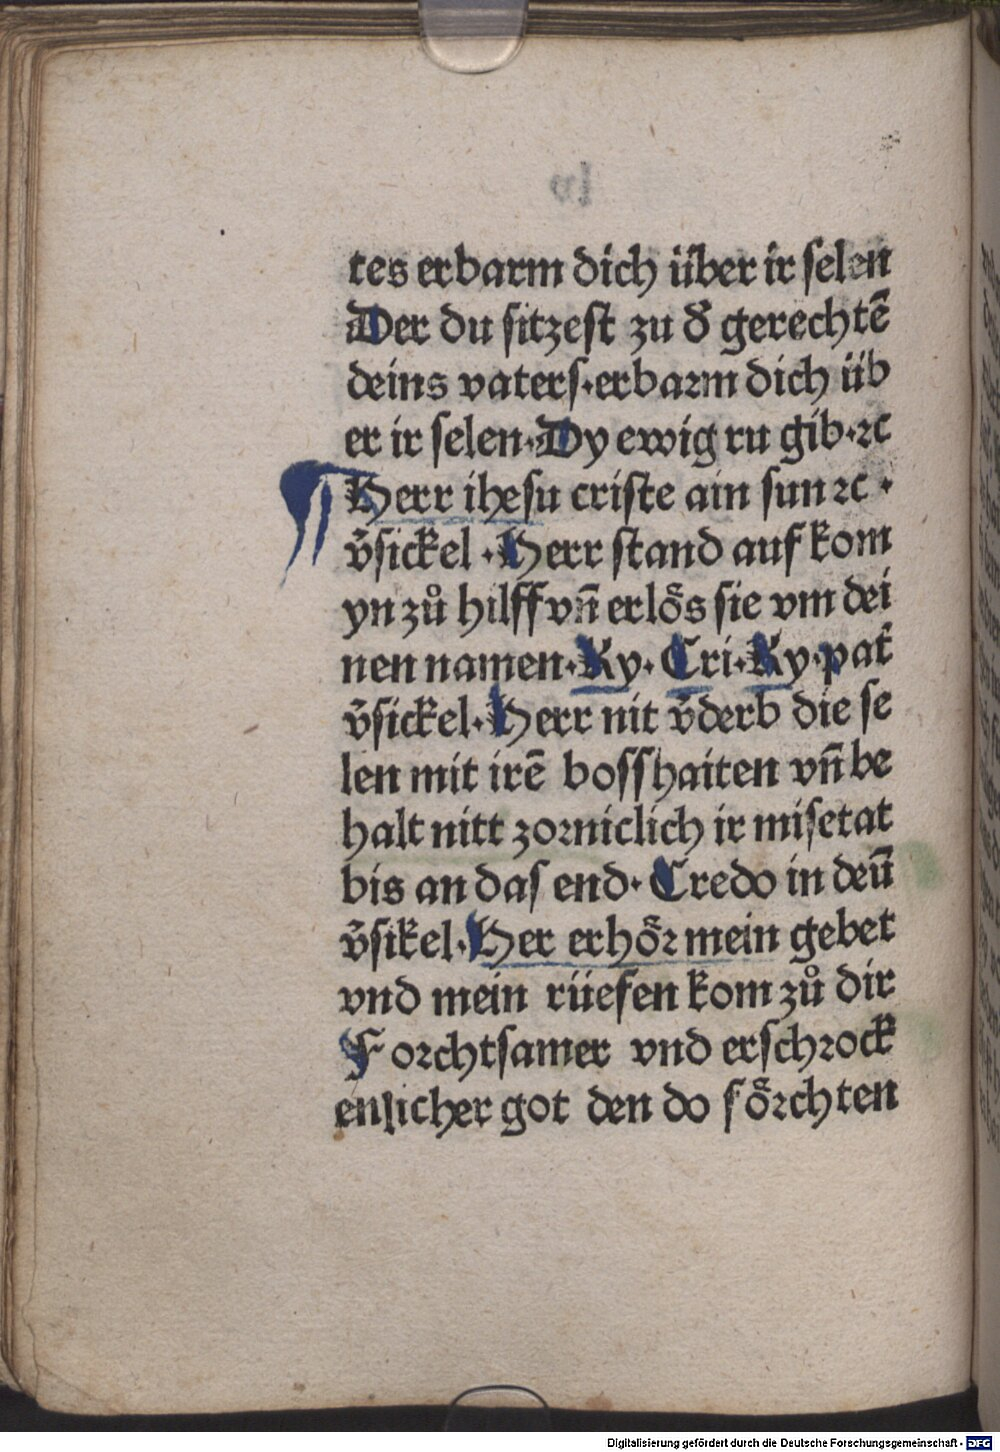 tes erbarm dich über ir selen
Der du sitzest zu d᷑ gerechtē
deins vaters·erbarm dich üb
er ir selen·Dy ewig ru gib·ꝛc
Herr ihesu criste ain sun ꝛc·
v̄sickel·Herr stand auf kom
yn zů hilff vn̄ erloͤs sie vm dei
nen namen·Ky·Cri·Ky·pat᷑
v̄sickel·Herr nit v̄derb die se
len mit irē bosshaiten vn̄ be
halt nitt zorniclich ir misetat
bis an das end·Credo in deū
v̄sikel·Her erhoͤr mein gebet
vnd mein rüefen kom zů dir
Forchtsamer vnd erschrock
enlicher got den do foͤrchten
Digitalisierung gefördert durch die Deutsche Forschungsgemeinschaft - DFG